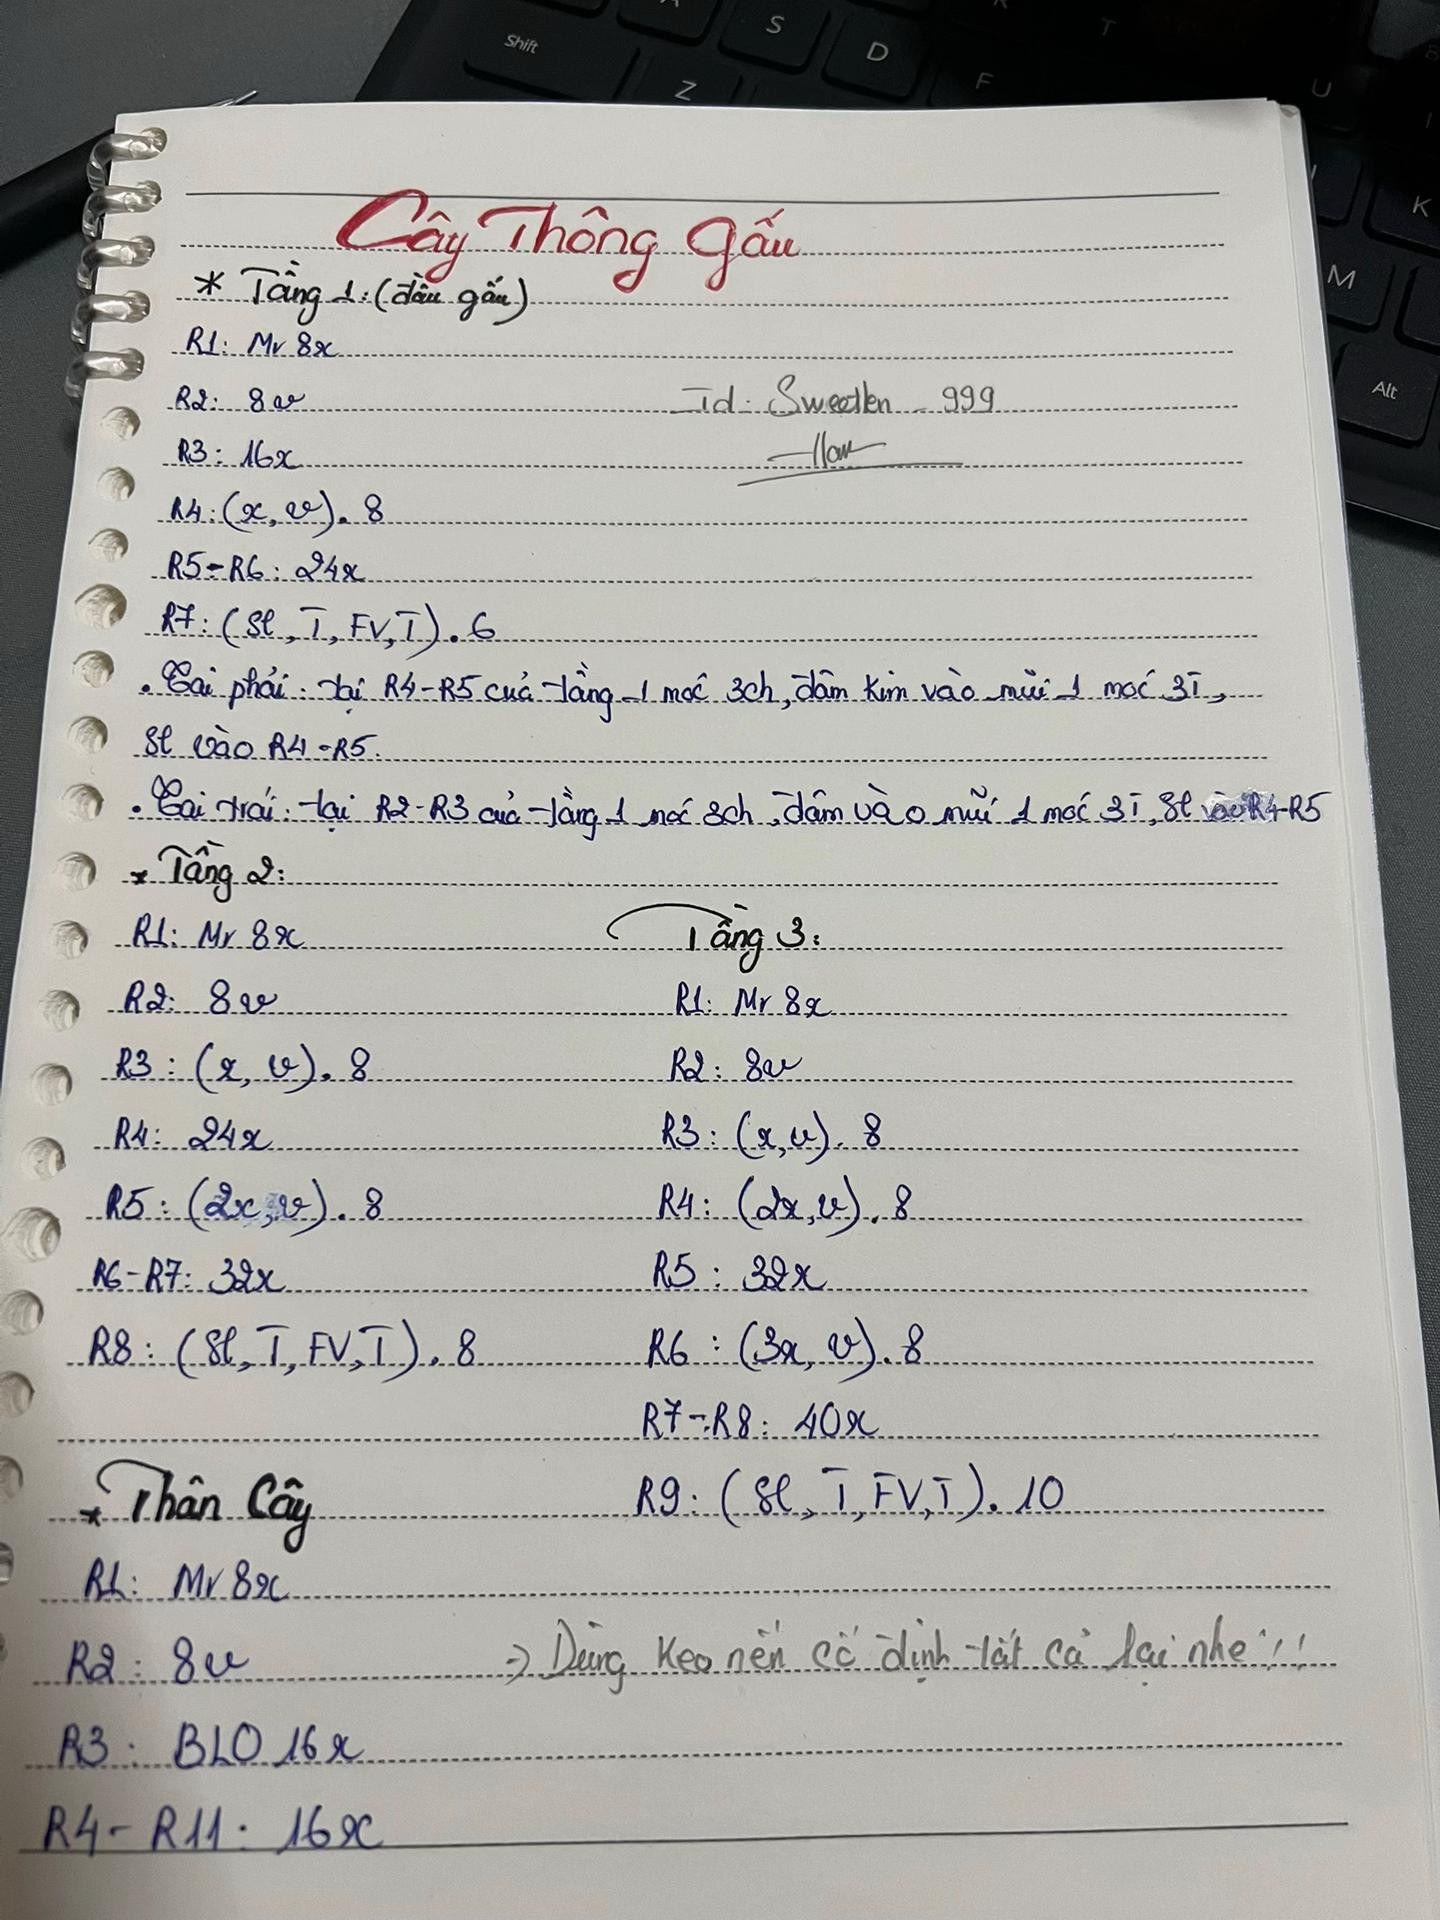 Cây Thông Gấu
* Tầng 1: (đầu gấu)
R1: Mr 8x
R2: 8v
Id: Sweetlen _ 999
R3: 16x
R4: (x, v). 8
R5-R6: 24x
R7: (Sl, T, FV, T). 6
. Tai phải: tại R4-R5 của tầng 1 móc 3ch, đâm kim vào mũi 1 móc 3T,
Sl vào R4-R5.
. Tai trái: tại R2-R3 của tầng 1 móc 3ch, đâm vào mũi 1 móc 3T, Sl vào R4-R5
* Tầng 2:
R1: Mr 8x
R2: 8v
R3: (x, v). 8
R4: 24x
R5: (2x, v). 8
R6-R7: 32x
R8: (Sl, T, FV, T). 8
Tầng 3:
R1: Mr 8x
R2: 8v
R3: (x, v). 8
R4: (2x, v). 8
R5: 32x
R6: (3x, v). 8
R7-R8: 40x
R9: (Sl, T, FV, T). 10
* Thân Cây
R1: Mr 8x
R2: 8v
R3: BLO 16x
R4-R11: 16x
-> Dùng keo nến cố định tất cả lại nhe!!
Shift
A
S
D
F
Z
K
T
U
M
K
Alt